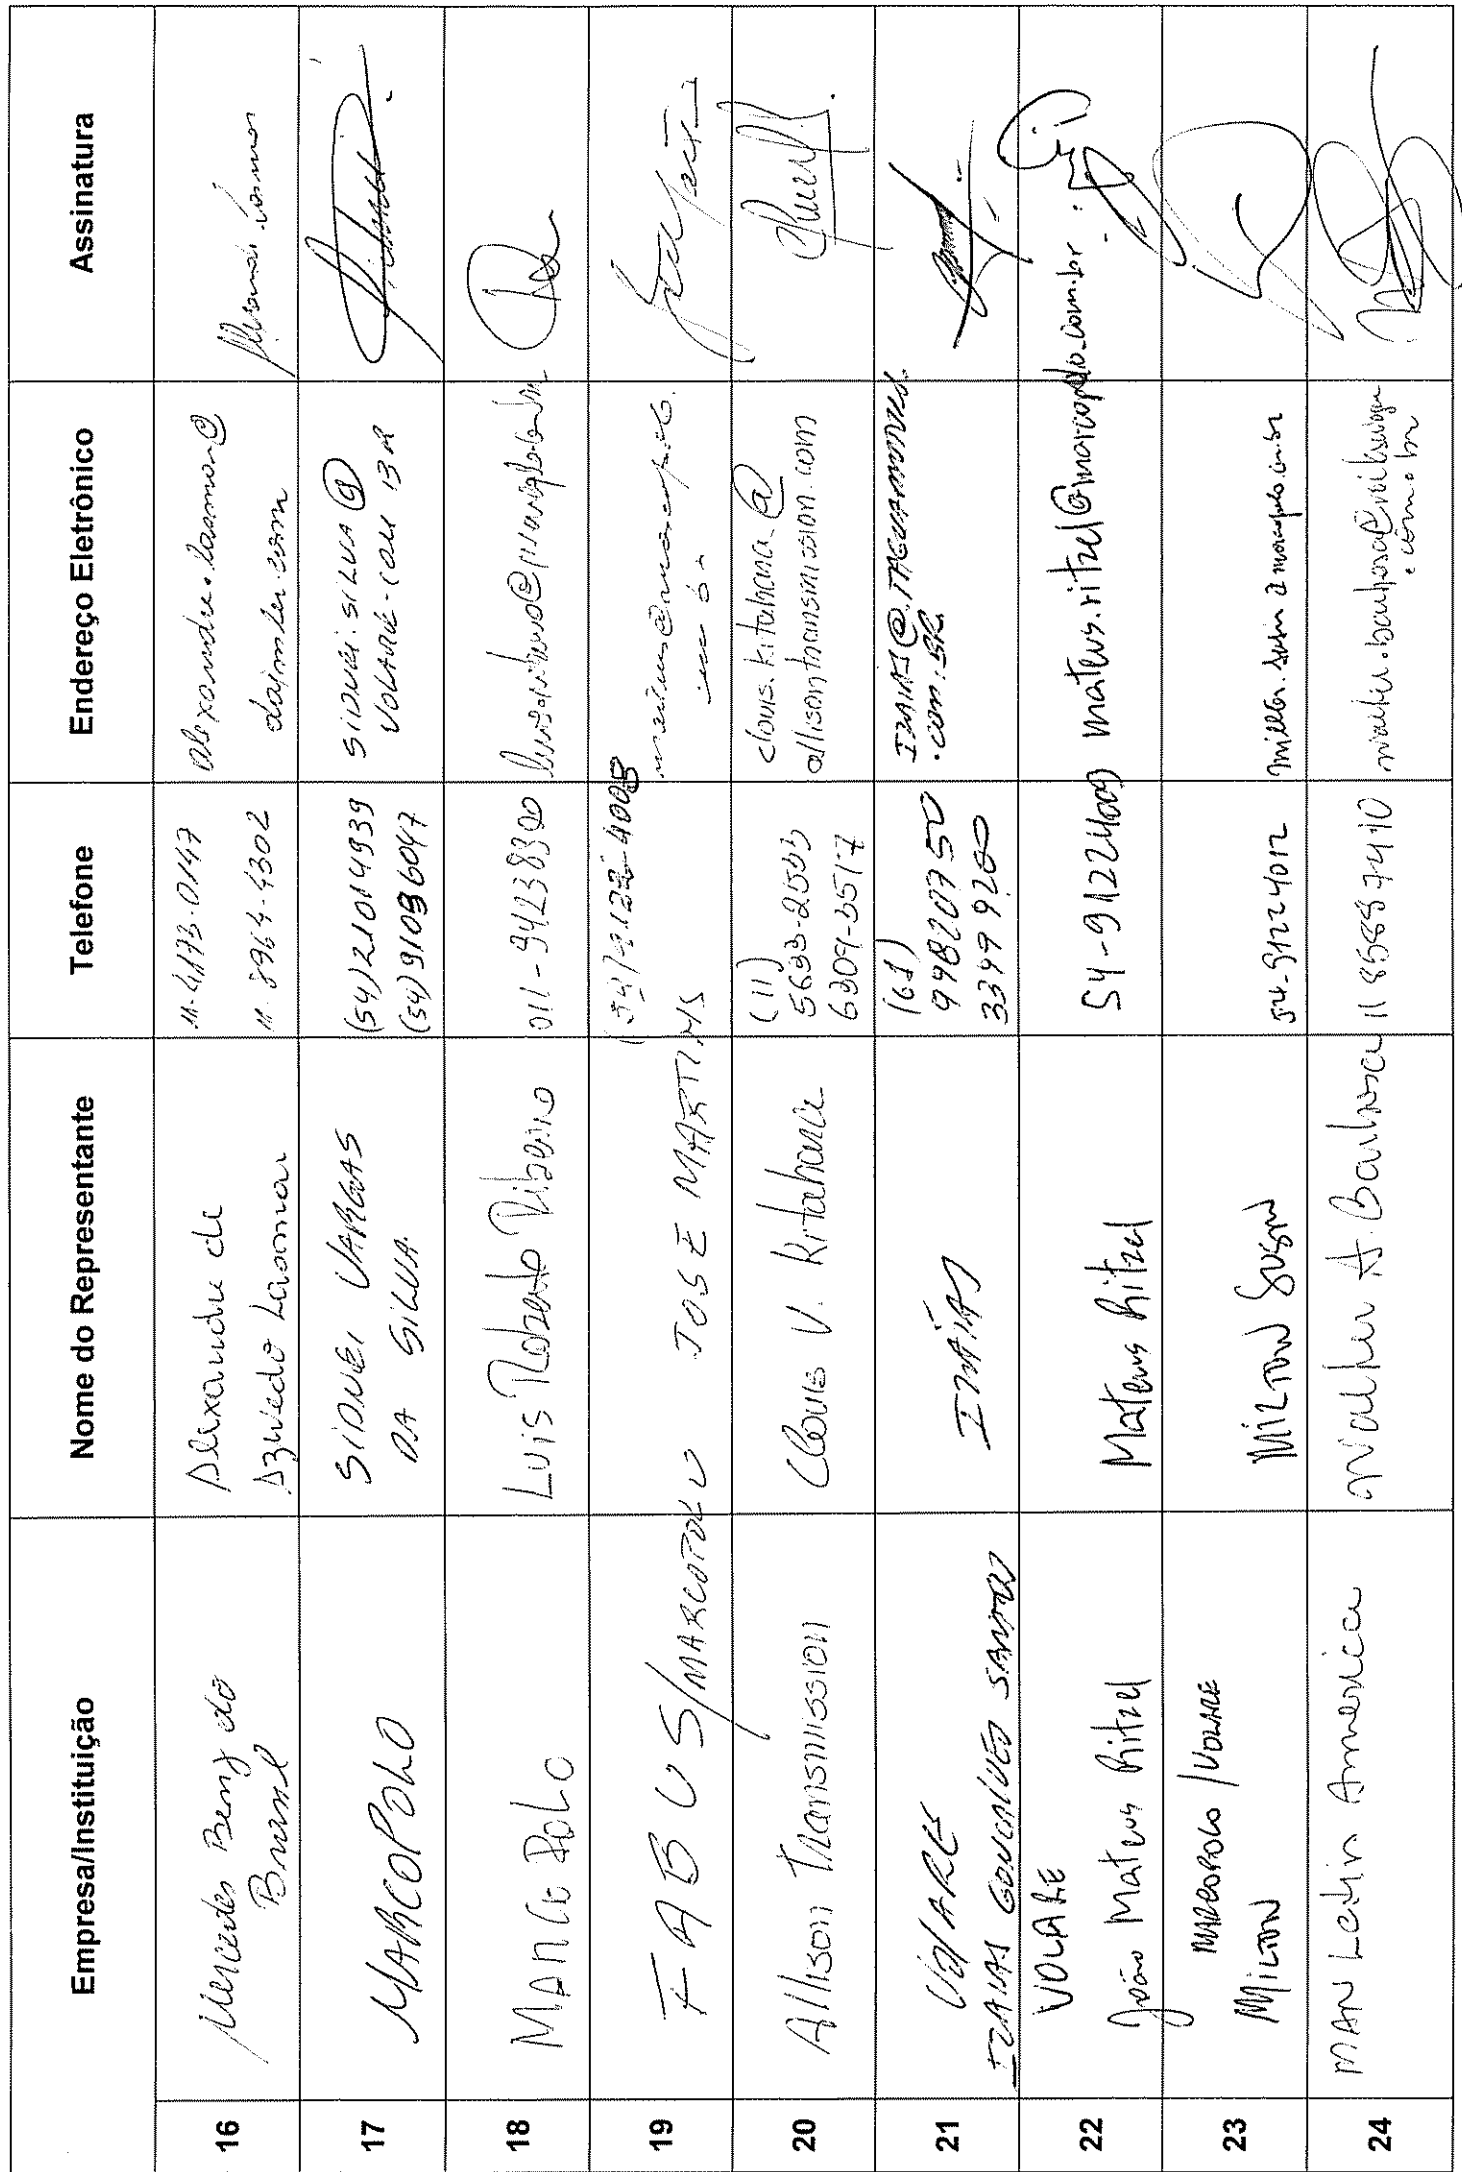 Empresa/Instituição
Nome do Representante
Telefone
Endereço Eletrônico
Assinatura
16
Mercedes Benz do
Brasil
Alexandre de
Azevedo Lasmar
11-4173-0147
11-8964-4302
alexandre.lasmar@
daimler.com
17
MARCOPOLO
SIDNEI VARGAS
DA SILVA
(54)21014939
(54)91036047
SIDNEI.SILVA@
VOLARE.COM
18
MARCOPOLO
LUIS Roberto Ribeiro
011-94238300
19
FABUS/MARCOPOLO
JOSE MARTINS
20
Allison Transmission
Clovis V. Kitahara
(11)
5633-2533
6309-3517
clovis.kitahara@
allisontransmission.com
21
VOLARE
IZAIAS GONCALVES SANTOS
IZAIAS
(61)
99820750
3399 9200
IZAIAS@TAGUAMOTORS
.COM.BR
22
VOLARE
João Mateus Ritzel
Mateus Ritzel
54-91224009
mateus.ritzel@marcopolo.com.br
23
MARCOPOLO/VOLARE
MILTON
MILTON SUSIN
54-91224012
milton.susin@marcopolo.com.br
24
MAN Latin America
Walter A. Barbosa
11 85887410
walter.barbosa@volkswagen
.com.br